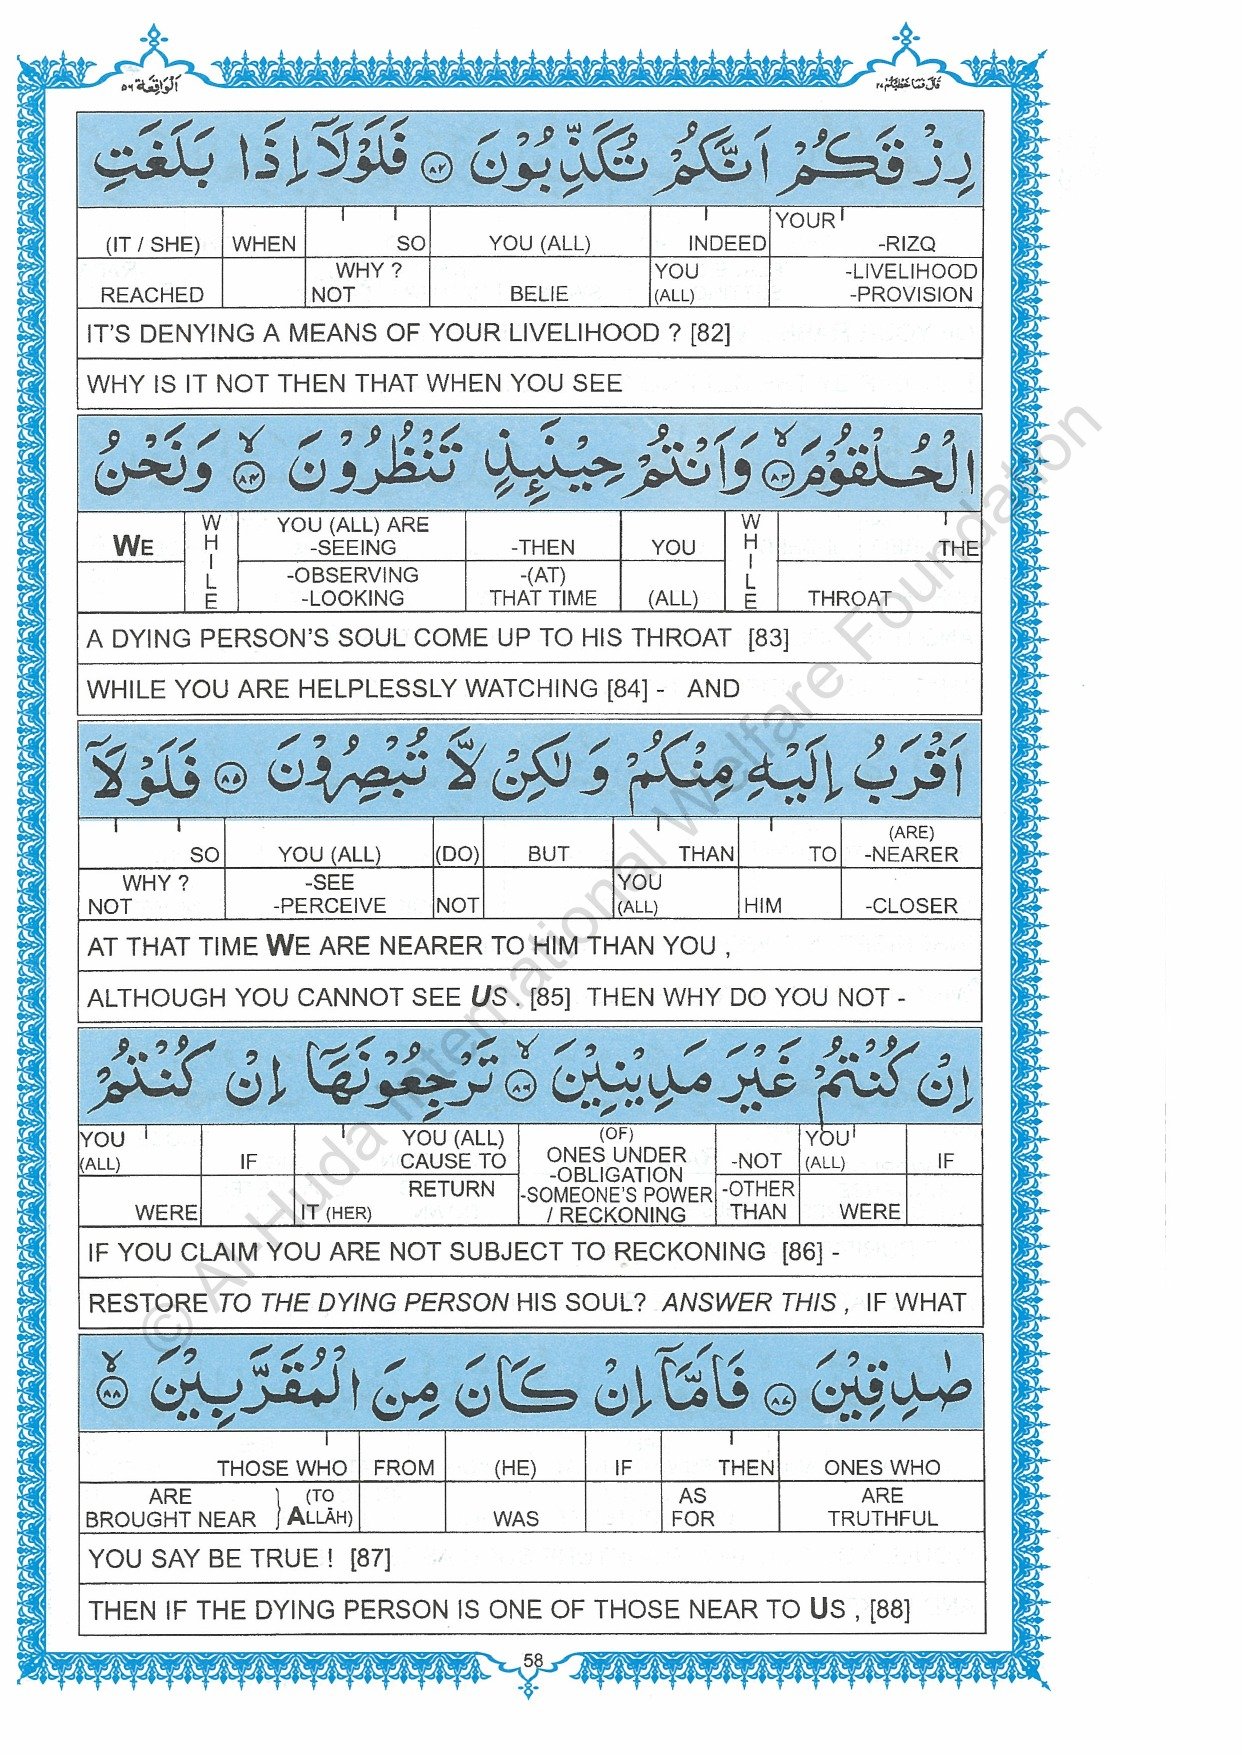 اَلْوَاقِعَة ٥٦
قَالَ فَمَا خَطْبُكُمْ ٢٧
رِزْقَكُمْ اَنَّكُمْ تُكَذِّبُوْنَ ۝٨٢ فَلَوْلَاۤ اِذَا بَلَغَتِ
(IT / SHE) WHEN SO YOU (ALL) INDEED YOUR -RIZQ
REACHED WHY ? NOT BELIE YOU (ALL) -LIVELIHOOD -PROVISION
IT'S DENYING A MEANS OF YOUR LIVELIHOOD ? [82]
WHY IS IT NOT THEN THAT WHEN YOU SEE
الْحُلْقُوْمَ ۝٨٣ۙ وَاَنْتُمْ حِيْنَىِٕذٍ تَنْظُرُوْنَ ۝٨٤ۙ وَنَحْنُ
WE WHILE YOU (ALL) ARE -SEEING -THEN YOU WHILE THE
-OBSERVING -LOOKING -(AT) THAT TIME (ALL) THROAT
A DYING PERSON'S SOUL COME UP TO HIS THROAT [83]
WHILE YOU ARE HELPLESSLY WATCHING [84] - AND
اَقْرَبُ اِلَيْهِ مِنْكُمْ وَلٰكِنْ لَّا تُبْصِرُوْنَ ۝٨٥ فَلَوْلَاۤ
SO YOU (ALL) (DO) BUT THAN TO (ARE) -NEARER
WHY ? NOT -SEE -PERCEIVE NOT YOU (ALL) HIM -CLOSER
AT THAT TIME WE ARE NEARER TO HIM THAN YOU ,
ALTHOUGH YOU CANNOT SEE US . [85] THEN WHY DO YOU NOT -
اِنْ كُنْتُمْ غَيْرَ مَدِيْنِيْنَ ۝٨٦ۙ تَرْجِعُوْنَهَاۤ اِنْ كُنْتُمْ
YOU (ALL) IF YOU (ALL) CAUSE TO (OF) ONES UNDER -OBLIGATION -NOT YOU (ALL) IF
WERE IT (HER) RETURN -SOMEONE'S POWER / RECKONING -OTHER THAN WERE
IF YOU CLAIM YOU ARE NOT SUBJECT TO RECKONING [86] -
RESTORE TO THE DYING PERSON HIS SOUL? ANSWER THIS , IF WHAT
صٰدِقِيْنَ ۝٨٧ فَاَمَّاۤ اِنْ كَانَ مِنَ الْمُقَرَّبِيْنَ ۝٨٨ۙ
THOSE WHO FROM (HE) IF THEN ONES WHO
ARE BROUGHT NEAR } (TO ALLĀH) WAS AS FOR ARE TRUTHFUL
YOU SAY BE TRUE ! [87]
THEN IF THE DYING PERSON IS ONE OF THOSE NEAR TO US , [88]
58
© Al-Huda International Welfare Foundation